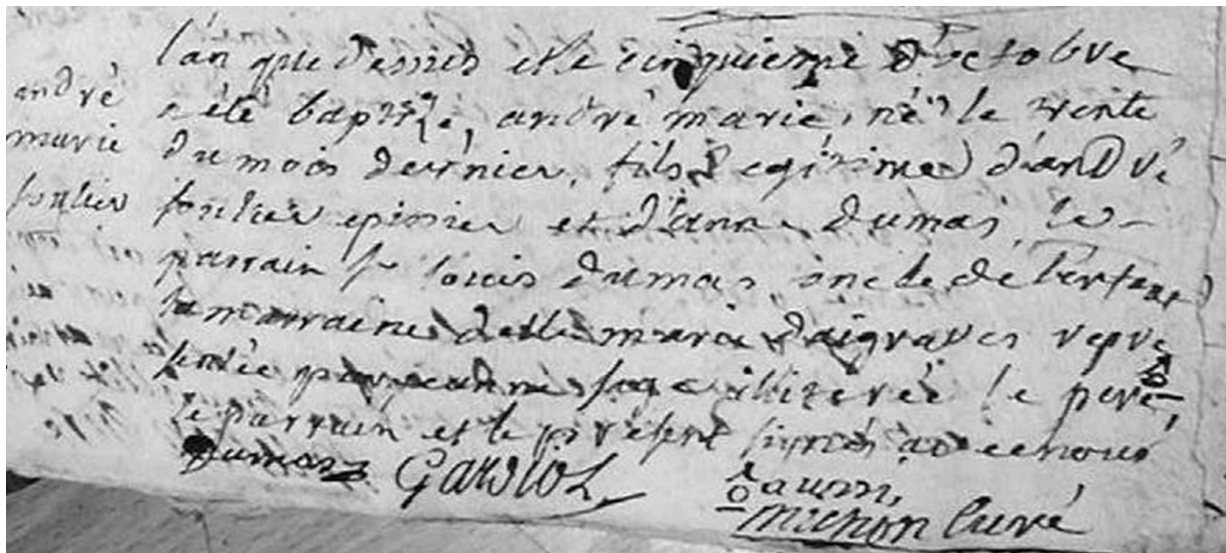 andré
marie
soulier
l'an que dessus et le cinquieme d'octobre
a été baptisé, andré marie, né le trente
du mois dernier, fils legitime d'andré
soulier epicier et d'anne dumas, le
parrain sr louis dumas oncle de l'enfant
la marraine delle marie daigraves repre
sentée par jeanne illiterée le pere,
le parrain et le présent signés avec nous
dumas Gardiol
michon Curé